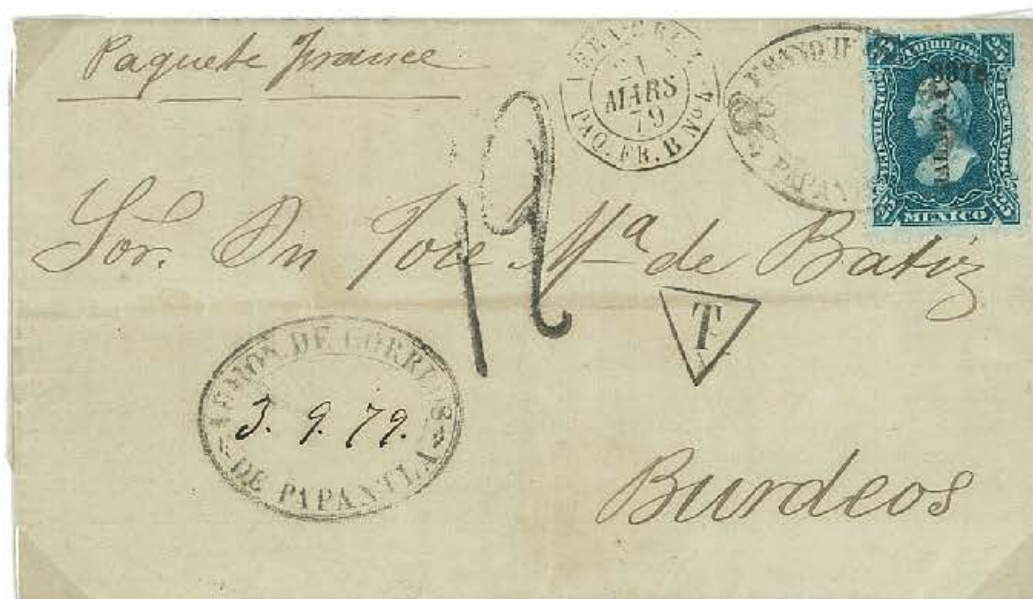 Paquete France
VERA-CRUZ
21
MARS
79
PAQ. FR. B Nº 4
FRANQUEADO
PAPANTLA
CORREOS
25
MEXICO
12
Sor. Dn José Mª de Batiz
T
ADMON. DE CORREOS
3. 9. 79.
DE PAPANTLA
Burdeos